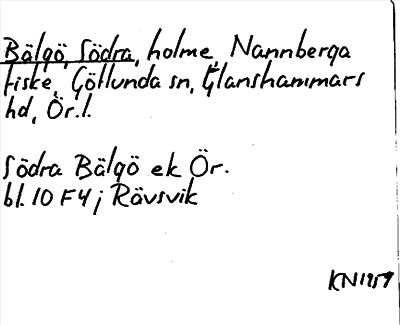 Bälgö, Södra, holme, Nannberga
fiske, Götlunda sn, Glanshammars
hd, Ör.l.
Södra Bälgö ek Ör.
bl. 10 F4 j Rävsvik
KN 1959